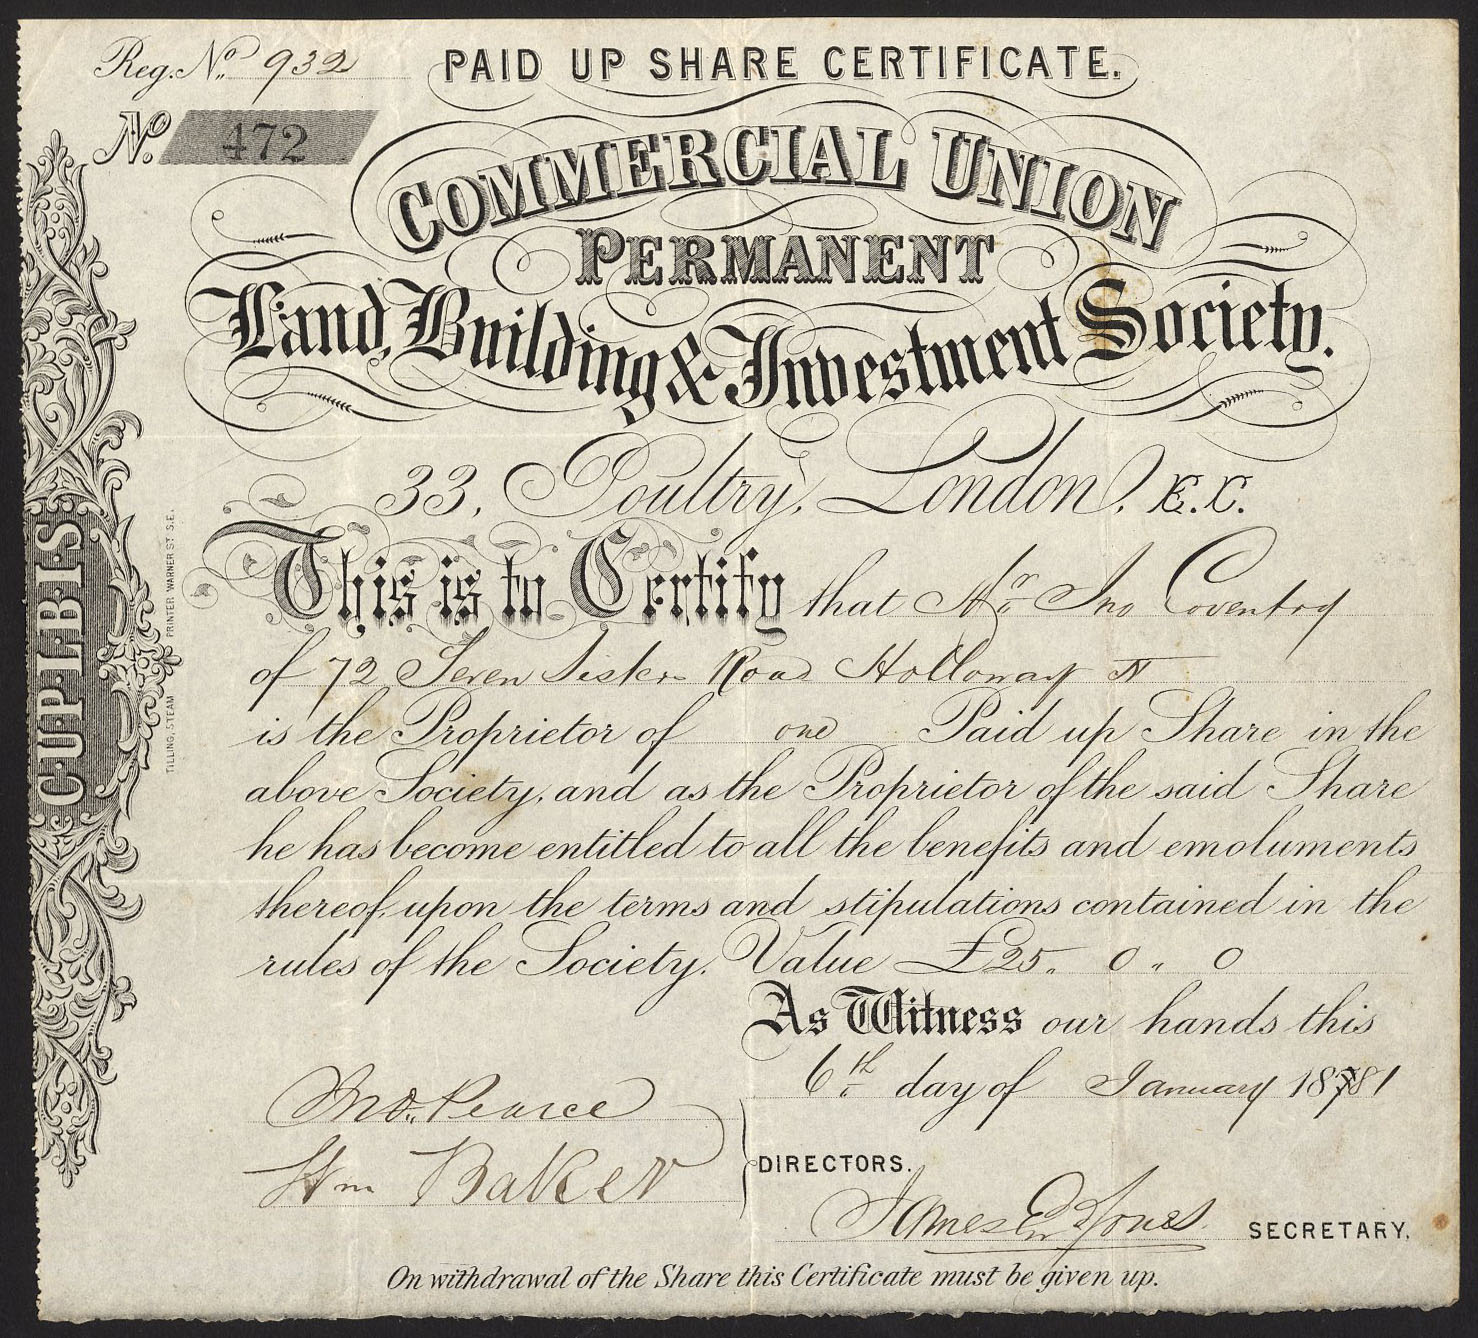 Reg. No. 932
PAID UP SHARE CERTIFICATE.
No. 472
COMMERCIAL UNION
PERMANENT
Land, Building & Investment Society.
33, Poultry, London, E.C.
This is to Certify that Mr. Jno Coventry
of 72 Seven Sisters Road Holloway N
is the Proprietor of one Paid up Share in the
above Society, and as the Proprietor of the said Share
he has become entitled to all the benefits and emoluments
thereof, upon the terms and stipulations contained in the
rules of the Society. Value £25 " 0 " 0
As Witness our hands this
6th day of January 1881
Jno. Pearce
Wm Baker
DIRECTORS.
James E Jones SECRETARY.
On withdrawal of the Share this Certificate must be given up.
C·U·P·L·B·I·S
TILLING, STEAM PRINTER WARNER ST. S.E.